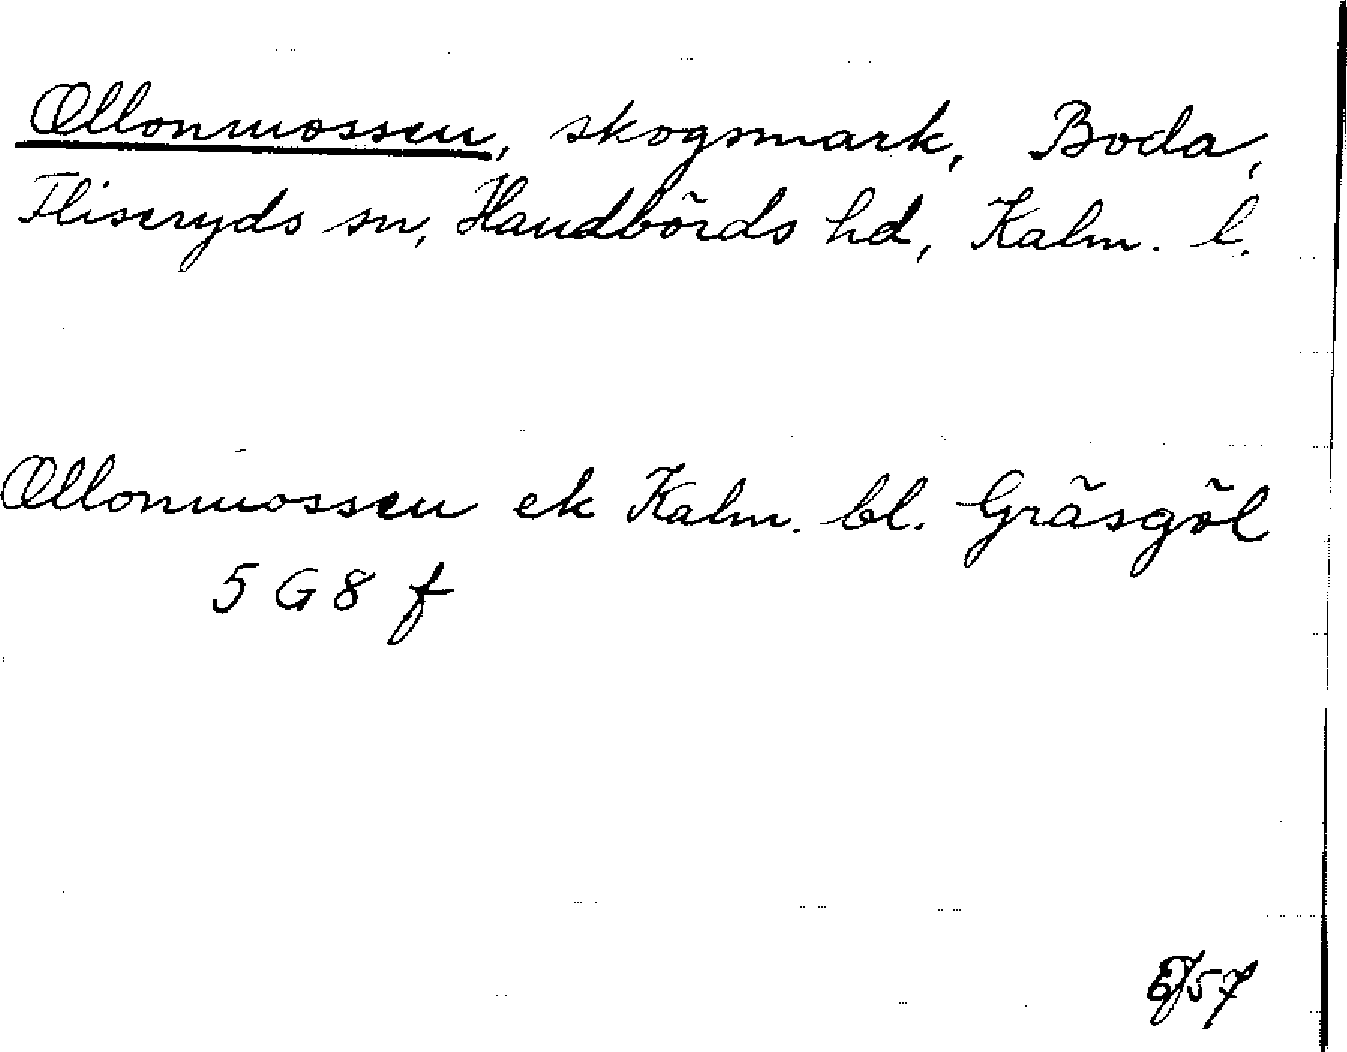 Ollonmossen, skogsmark, Boda,
Fliseryds sn, Handbörds hd, Kalm. l.
Ollonmossen ek Kalm. bl. Gräsgöl
5 G 8 f